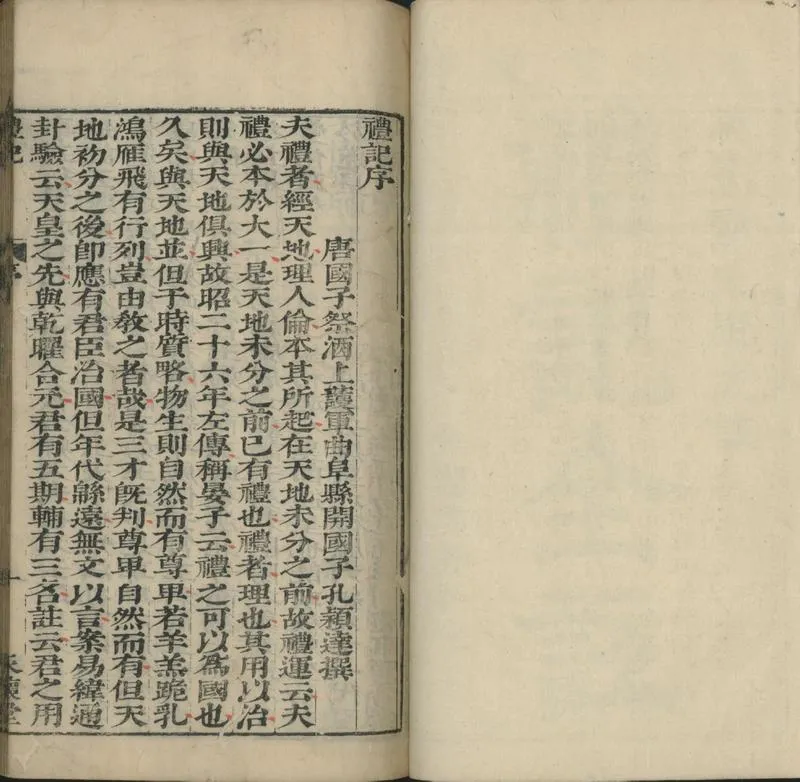 禮記序
唐國子祭酒上護軍曲阜縣開國子孔穎達撰
夫禮者經天地理人倫本其所起在天地未分之前故禮運云夫
禮必本於大一是天地未分之前已有禮也禮者理也其用以治
則與天地俱興故昭二十六年左傳稱晏子云禮之可以為國也
久矣與天地並但于時質略物生則自然而有尊卑若羊羔跪乳
鴻雁飛有行列豈由教之者哉是三才旣判尊卑自然而有但天
地初分之後卽應有君臣治國但年代緜遠無文以言案易緯通
卦驗云天皇之先與乾曜合元君有五期輔有三名註云君之用
禮記 序 一